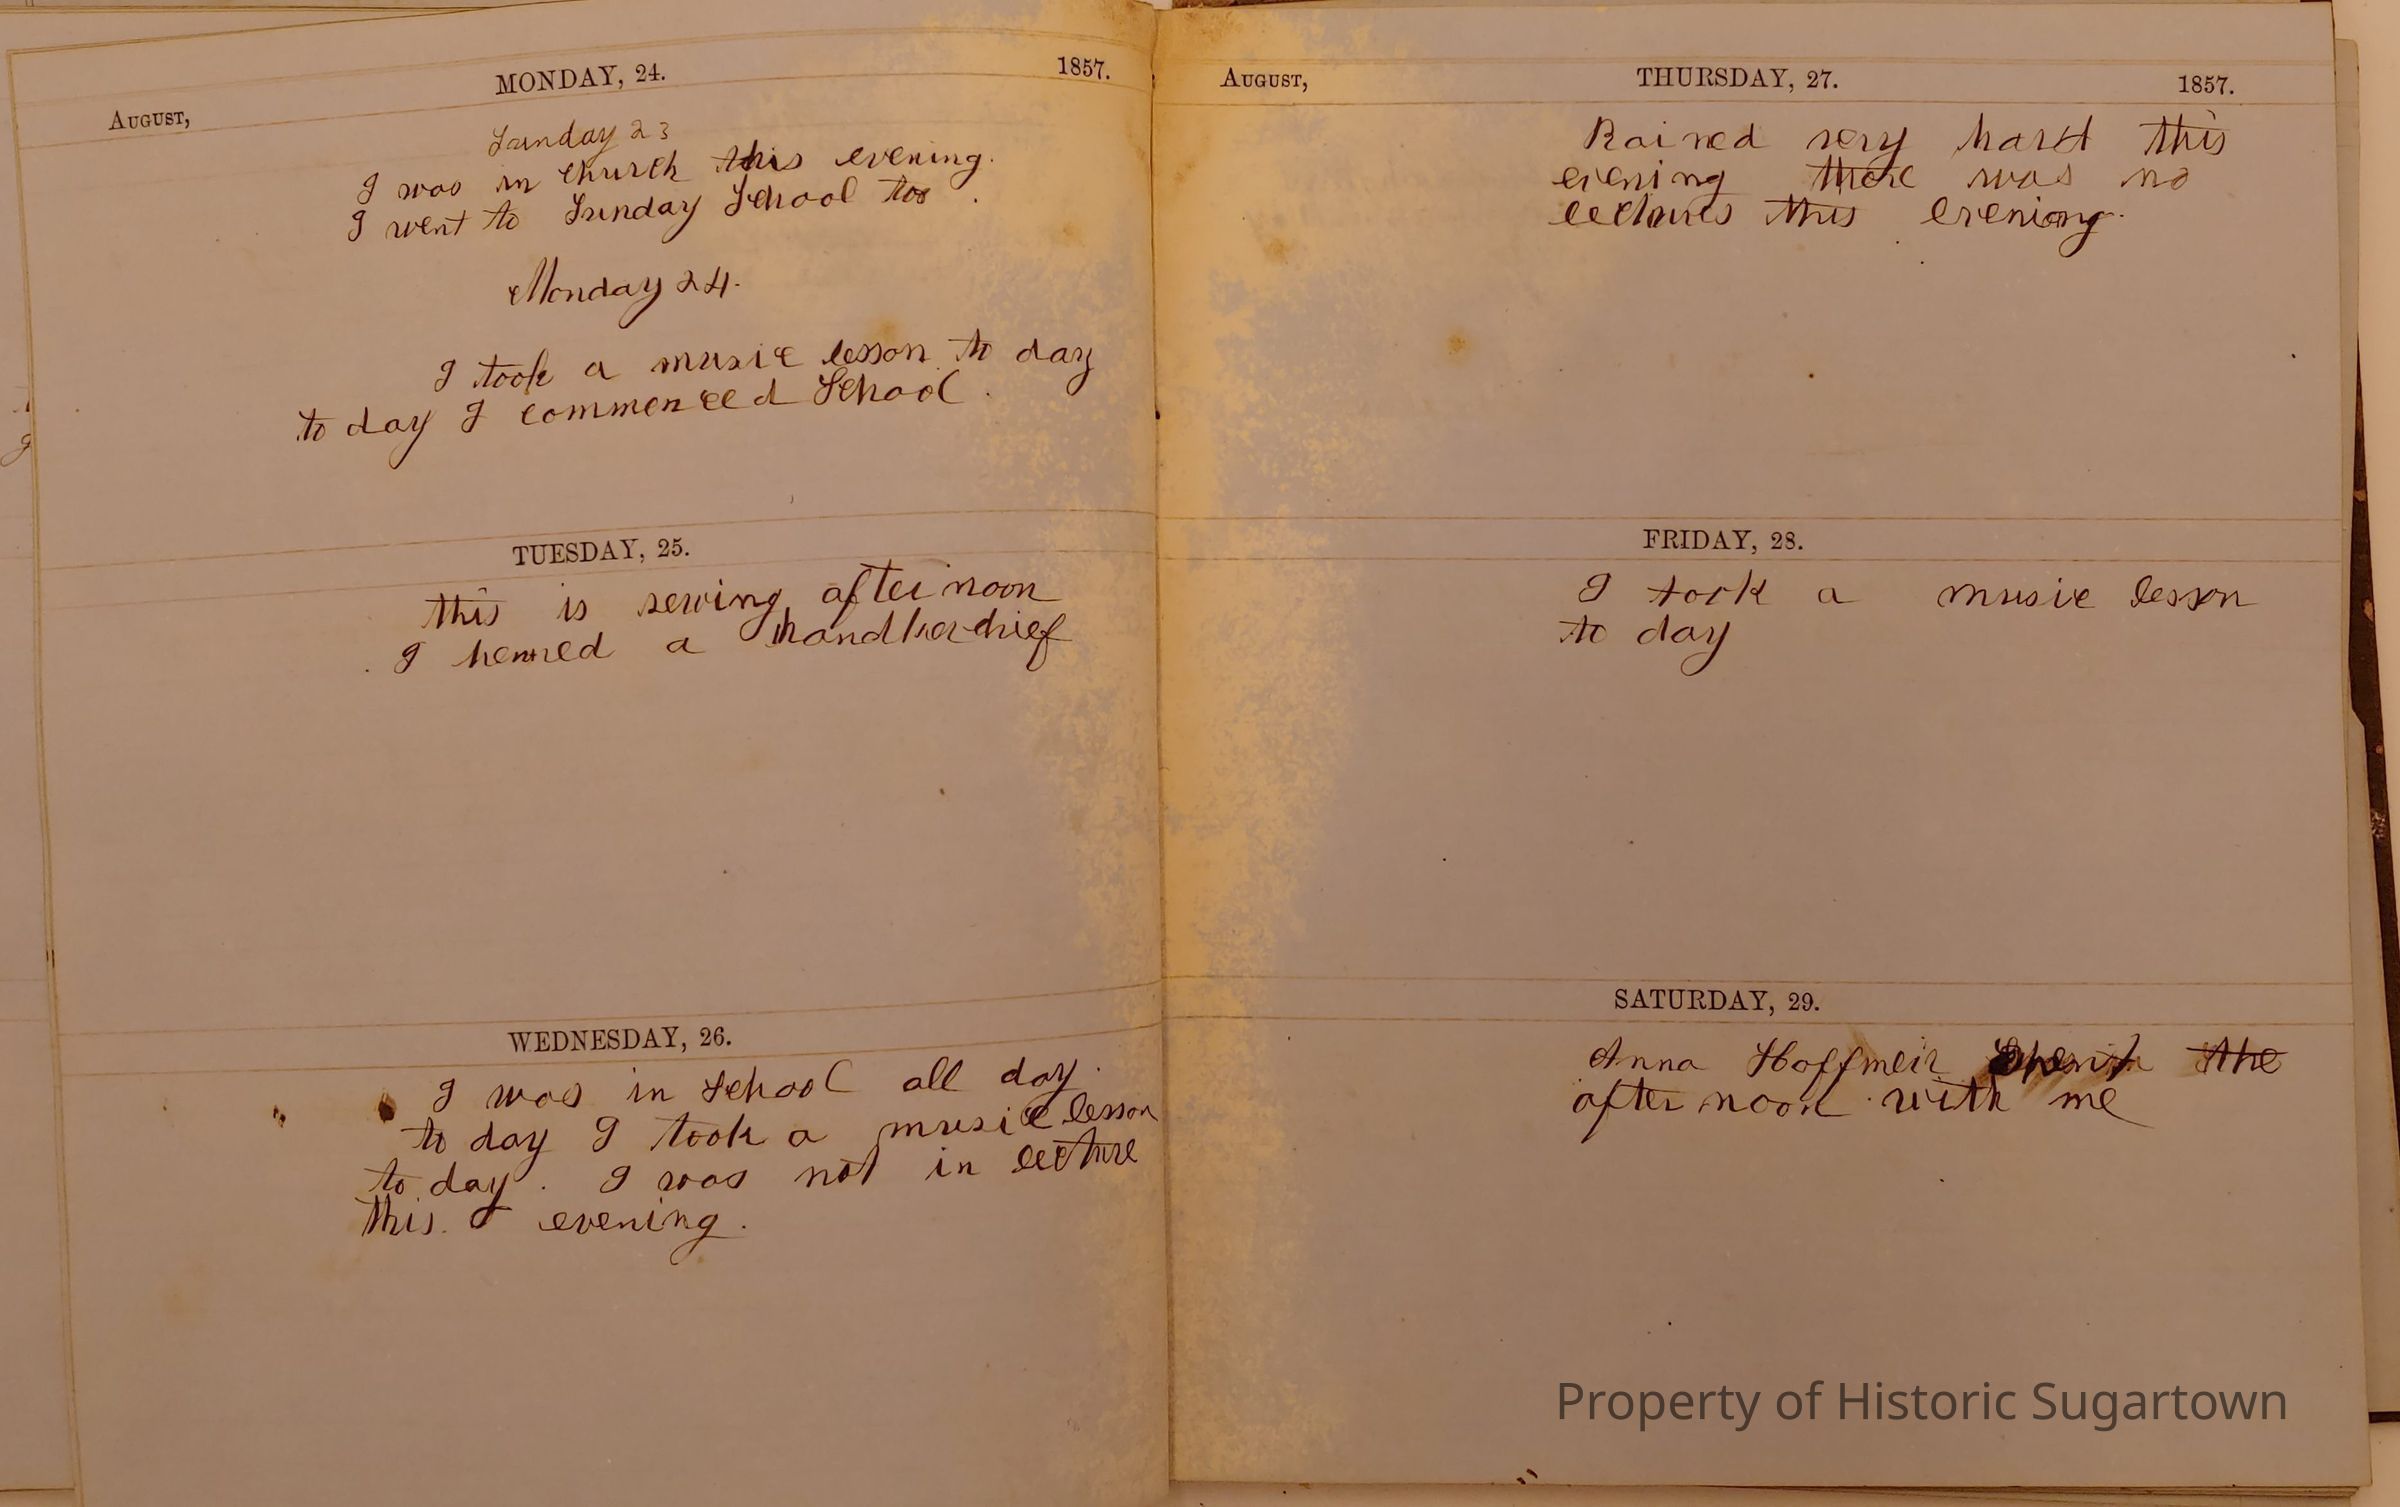 MONDAY, 24.
1857.
August,
Sunday 23
I was in church this evening.
I went to Sunday School too.
Monday 24.
I took a music lesson to day
to day I commenced School.
TUESDAY, 25.
this is sewing afternoon
I hemed a handkerchief
WEDNESDAY, 26.
I was in School all day.
to day I took a music lesson
to day. I was not in lecture
this evening.
August,
THURSDAY, 27.
1857.
Rained very hard this
evening there was no
lectures this evening.
FRIDAY, 28.
I took a music lesson
to day
SATURDAY, 29.
Anna Hoffmeir Spent the
afternoon with me
Property of Historic Sugartown